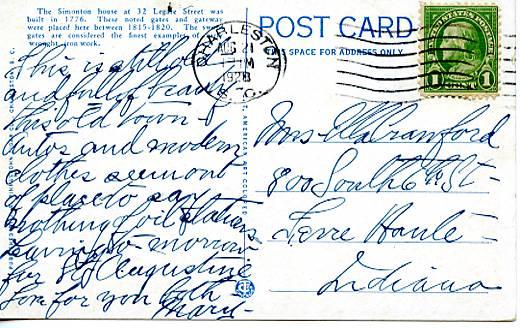 The Simonton house at 32 Legare Street was
built in 1776. These noted gates and gateway
were placed here between 1815-1820. The
gates are considered the finest examples of
wrought iron work.
POST CARD
THIS SPACE FOR ADDRESS ONLY.
CHARLESTON
AUG 21
12 M
1928
S. C.
UNITED STATES POSTAGE
1 CENT 1
This is still
and full of beauty
this old town &
autos and modern
clothes seem out
of place to say
nothing of oil stations
Leaving to-morrow
for St Augustine
Love for you both
Mary-
Mrs Crawford
800 South 6th St-
Terre Haute-
Indiana